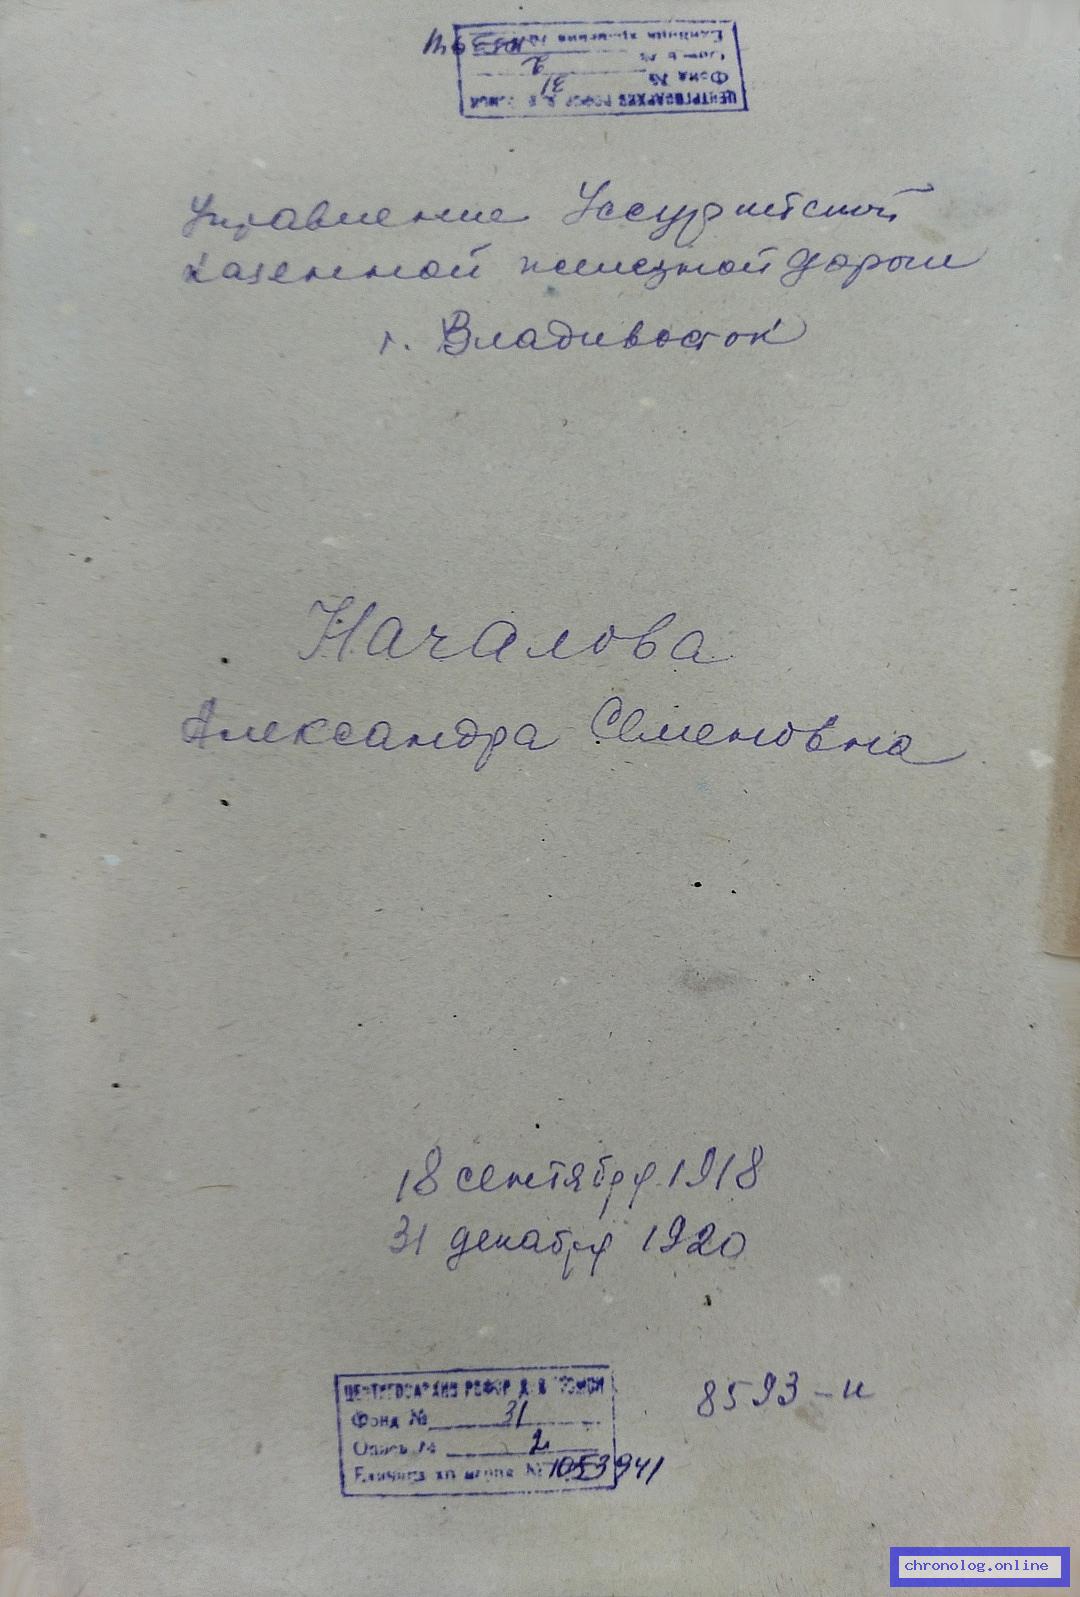 ЦЕНТРГОСАРХИВ РСФСР Д. В. ТОМСК
Фонд № 31
Опись № 2
Единица хранения № 941
Управление Уссурийской
казенной железной дороги
г. Владивосток
Началова
Александра Семеновна
18 сентября 1918
31 декабря 1920
8593-и
ЦЕНТРГОСАРХИВ РСФСР Д. В. ТОМСК
Фонд № 31
Опись № 2
Единица хранения № 1053 941
chronolog.online